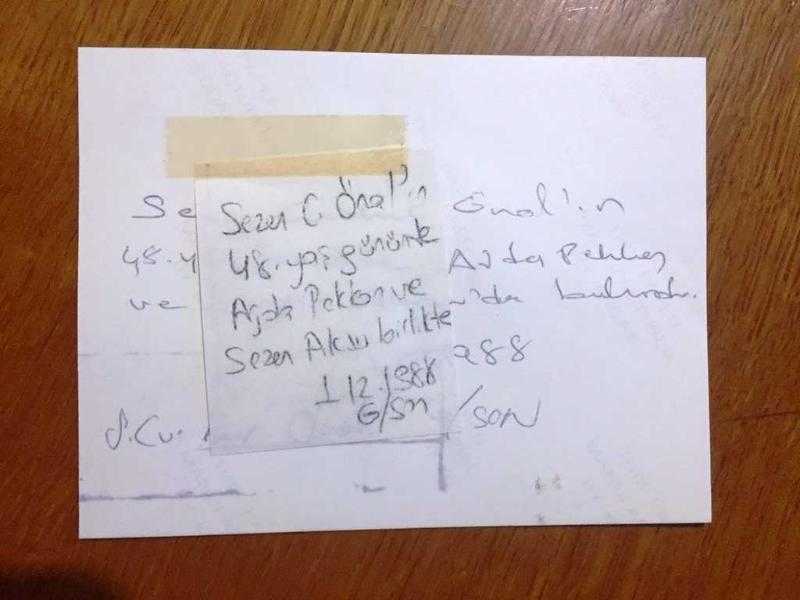 Sezen C. Önal'ın
48. yaş gününde
Ajda Pekkan ve
Sezen Aksu birlikte
1.12.1988
G/SN
Se Önal'ın
48. y Ajda Pekkan
ve
988
/SON